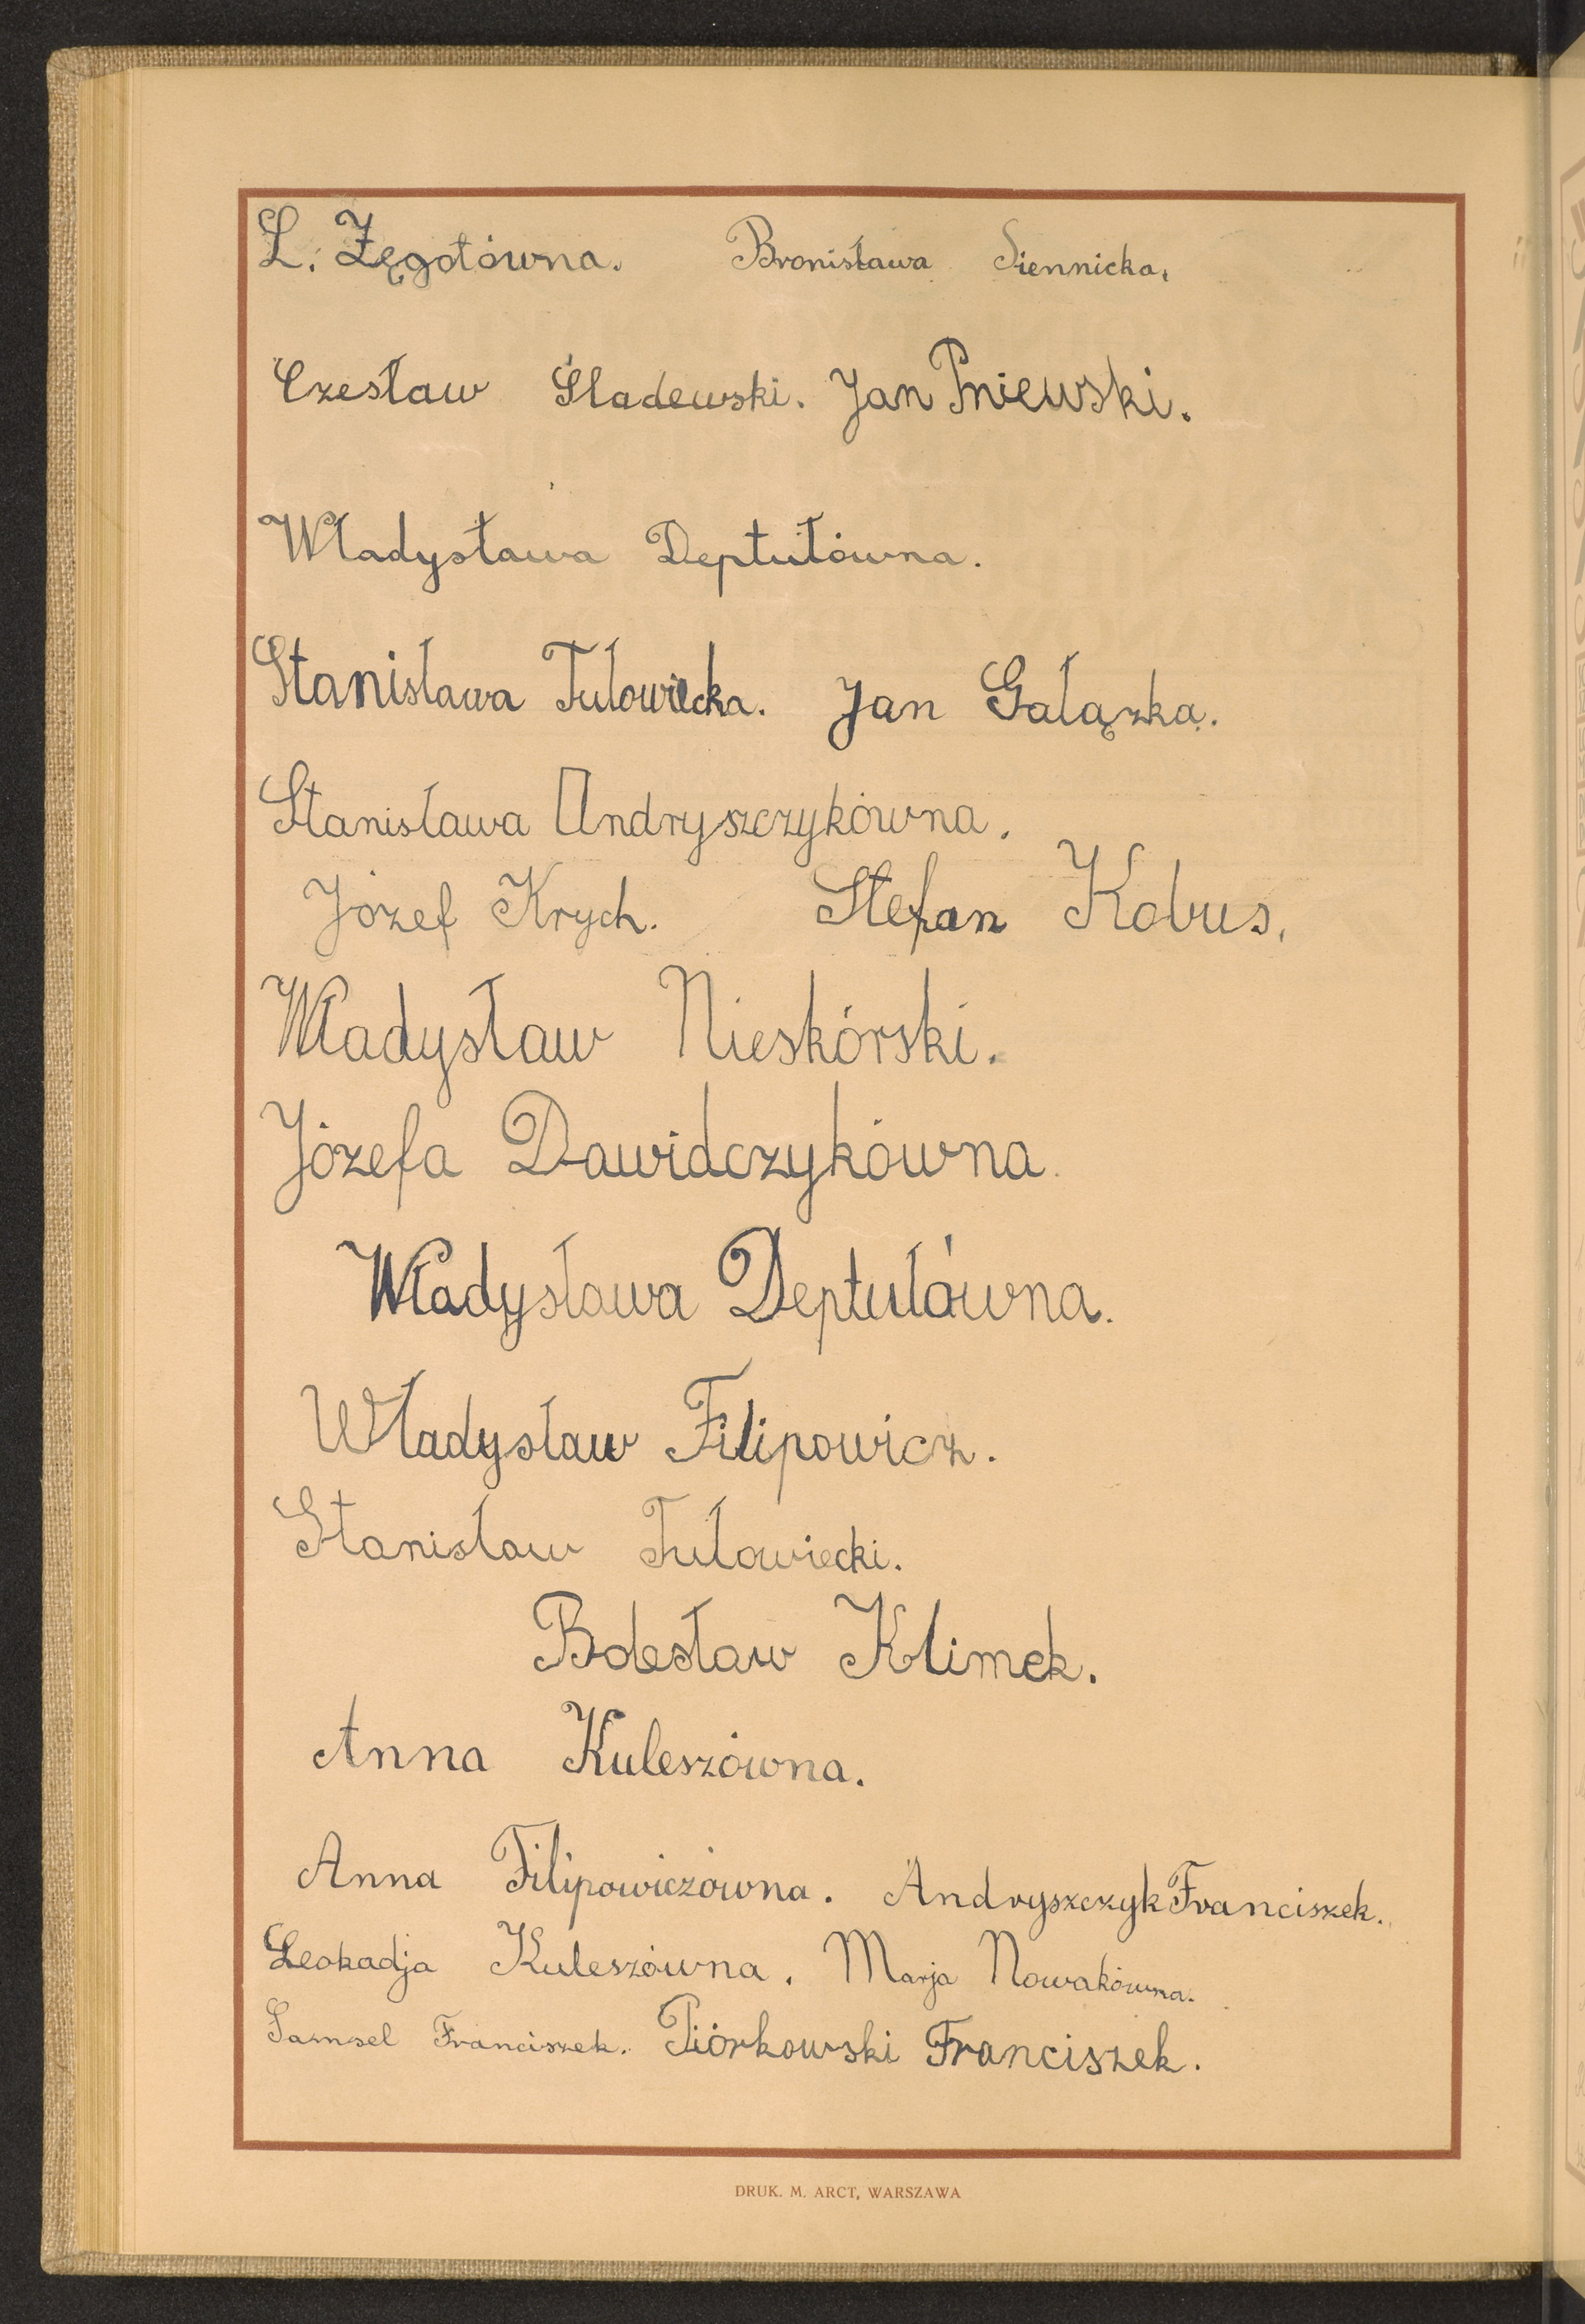 L. Zęgotówna. Bronisława Siennicka.
Czesław Śladewski. Jan Pniewski.
Władysława Deptułówna.
Stanisława Tułowiecka. Jan Gałązka.
Stanisława Andryszczykówna.
Józef Krych. Stefan Kobus.
Władysław Nieskórski.
Józefa Dawidczykówna.
Władysława Deptułówna.
Władysław Filipowicz.
Stanisław Tułowiecki.
Bolesław Klimek.
Anna Kuleszówna.
Anna Filipowiczówna. Andryszczyk Franciszek.
Leokadja Kuleszówna. Marja Nowakówna.
Samsel Franciszek. Piórkowski Franciszek.
DRUK. M. ARCT, WARSZAWA